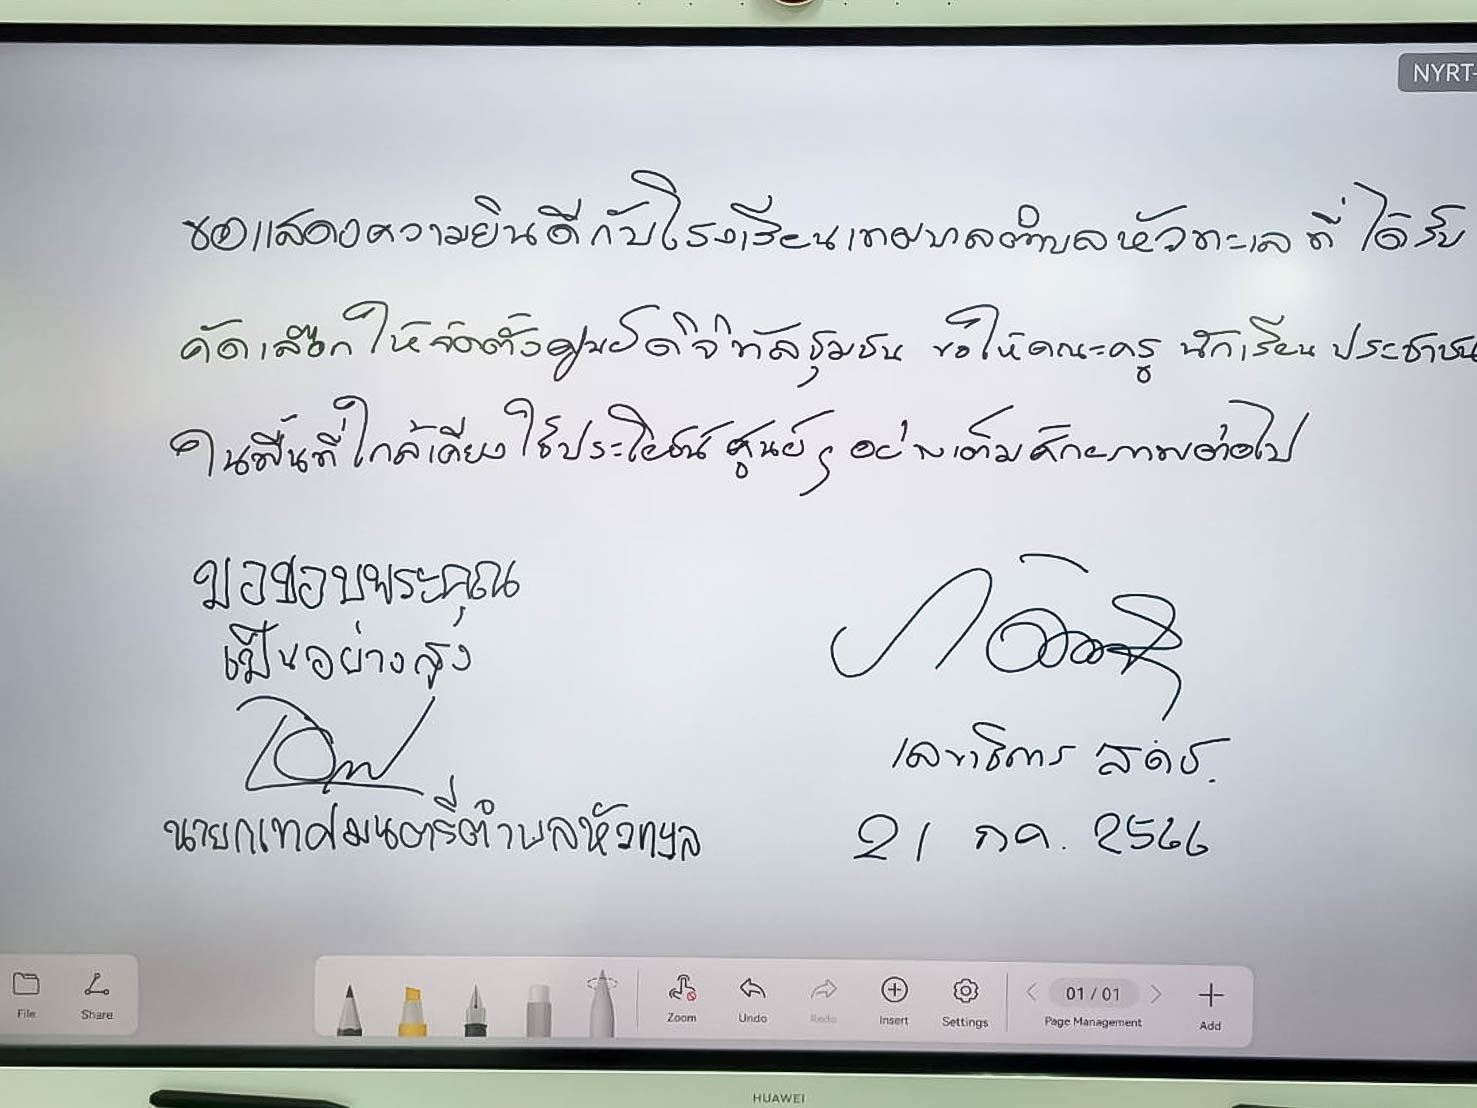 NYRT-
ขอแสดงความยินดีกับโรงเรียนเทศบาลตำบลหัวทะเลที่ได้รับ
คัดเลือกให้จัดตั้งศูนย์ดิจิทัลชุมชน ขอให้คณะครู นักเรียน ประชาชน
ในพื้นที่ใกล้เคียงใช้ประโยชน์ศูนย์ๆ อย่างเต็มศักยภาพต่อไป
ขอขอบพระคุณ
เป็นอย่างสูง
เลขาธิการ สดช.
นายกเทศมนตรีตำบลหัวทะเล
21 กค. 2566
File
Share
Zoom
Undo
Redo
Insert
Settings
01 / 01
Page Management
Add
HUAWEI